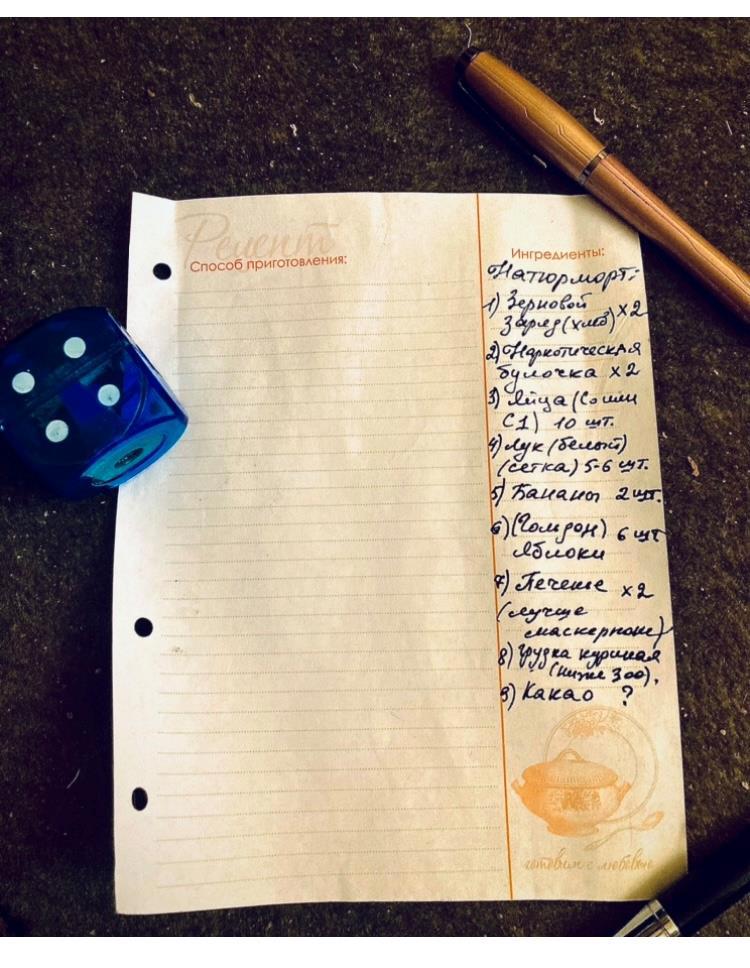 Рецепт
Способ приготовления:
Ингредиенты:
Натюрморт:
1) Зерновой
Заряд (хлеб) x2
2) Наркотическая
булочка x2
3) Яйца (Сомин
С1) 10 шт.
4) Лук (белый)
(сетка) 5-6 шт.
5) Бананы 2 шт.
6) (Голден) 6 шт
Яблоки
7) Печенье x2
(лучше
маскерпоне)
8) Грудка куриная
(ниже 300).
9) Какао ?
готовим с любовью